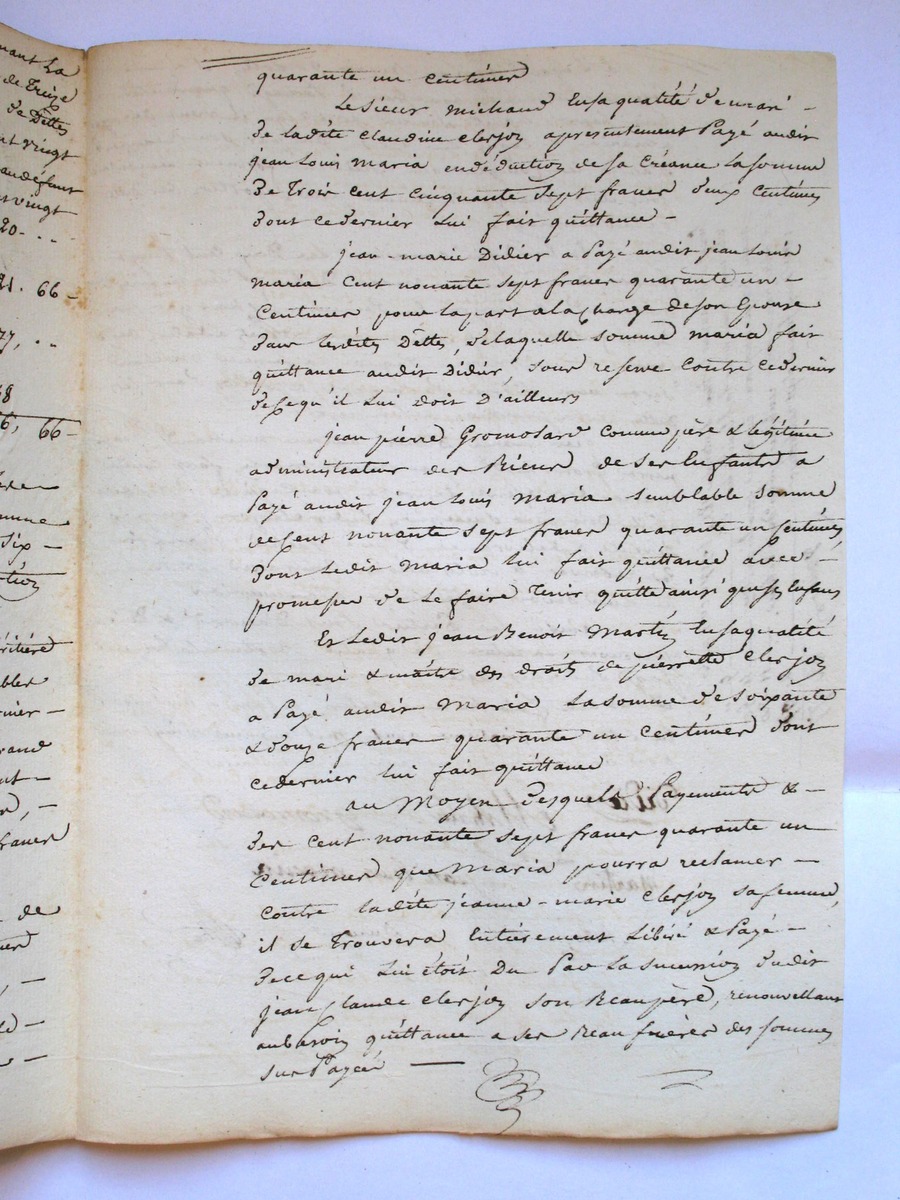 nant La
de Treize
de Dettes
nt vingt
audéfaut
t vingt
20 - . .
21. 66 -
77, . .
48
6, 66 -
mme
six -
tion
éritière
ables
nier -
rand
nt -
francs
de
quarante un centimes
Le sieur michaud Ensa qualité de mari -
de ladite Claudine Clerjon apresentement Payé audit
jean Louis maria en déduction de sa Créance La somme
de Trois cent cinquante sept francs deux Centimes
Dont cedernier Lui fait quittance -
jean-marie Didier a Payé audit jean Louis
maria Cent nonante sept francs quarante un -
Centimes pour la part ala charge de son Epouse
Dans lesdites Dettes, de laquelle somme maria fait
quittance audit Didier, sous reserve Contre cedernier
de ce qu'il Lui doit D'ailleurs
jean pierre Gromosard comme père & légitime
administrateur des Biens de ses Enfants a
Payé audit jean Louis maria semblable somme
de Cent nonante sept francs quarante un Centimes,
Dont Ledit maria lui fait quittance avec -
promesse de Le faire Tenir quitte ainsi que ses Enfans
Et Ledit jean Benoit Martin Ensa qualité
de mari & maître des droits de pierrette Clerjon
a Payé audit Maria La somme de soixante
& douze francs quarante un centimes dont
cedernier lui fait quittance
au Moyen desquels Payements & -
Des Cent nonante sept francs quarante un
Centimes que Maria pourra reclamer -
contre ladite jeanne-marie Clerjon sa femme,
il se Trouvera Entierement Libéré & Payé -
De ce qui Lui étoit Du Par La succession dudit
jean Claude Clerjon son Beaupère, renouvellant
aubesoin quittance a ses Beau frères des sommes
sus Payées —